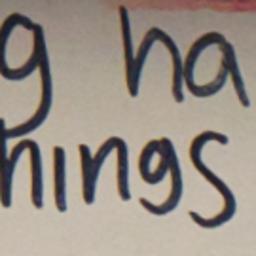 g ha
nings